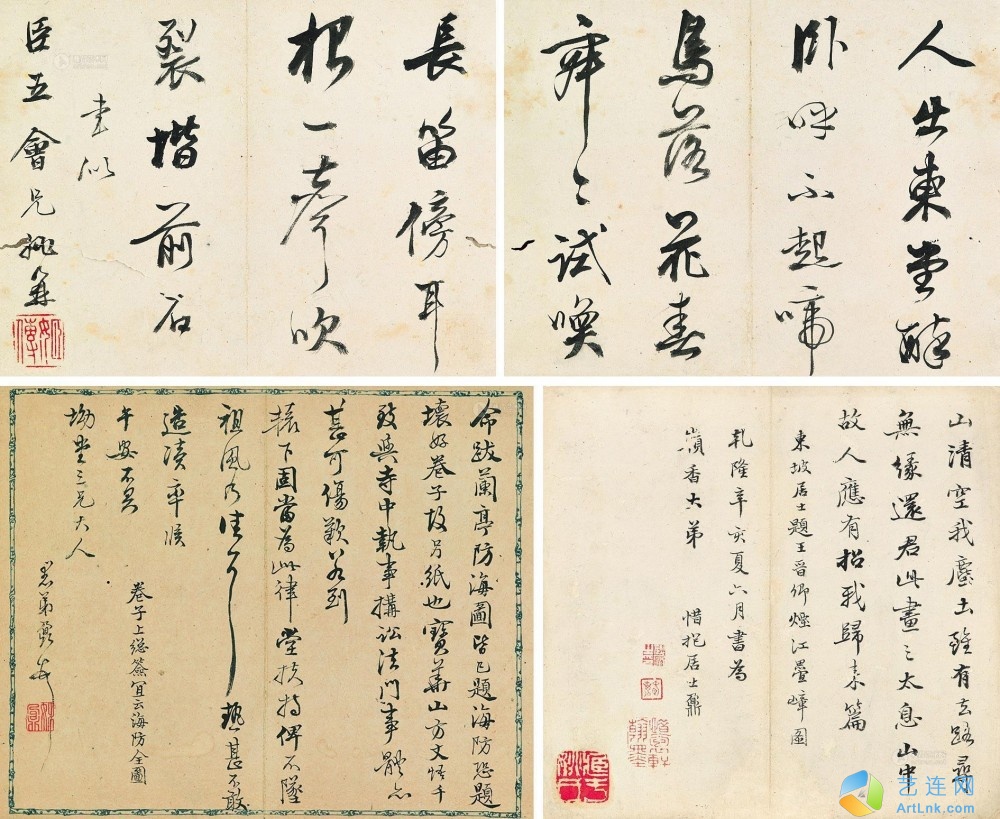 人出東堂醉
臥呼不起啼
鳥落花春
寂〻試喚
長笛傍耳
根一聲吹
裂堦前石
書似
臣五會兄 姚鼐
山清空我塵土雖有去路尋
無緣還君此畫三太息山中
故人應有招我歸來篇
東坡居士題王晉卿煙江疊嶂圖
乾隆辛亥夏六月書為
香大弟 惜抱居士鼐
命跋蘭亭防海圖皆已題海防恐題
壞好卷子故另紙也寶華山方丈悟千
致與寺中執事搆訟法門事體亦
甚可傷歎 到
轅下固當為此律堂扶持俾不墜
祖風乃佳耳 熱甚不敢
造凟率候
午安不具
坳堂三兄大人
愚弟鼐
卷子上總簽宜云海防全圖
艺连网
ArtLnk.com